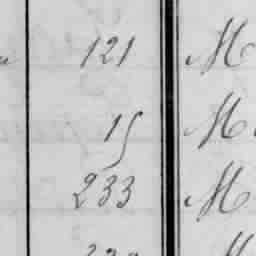 121 M
15 M
233 M
M